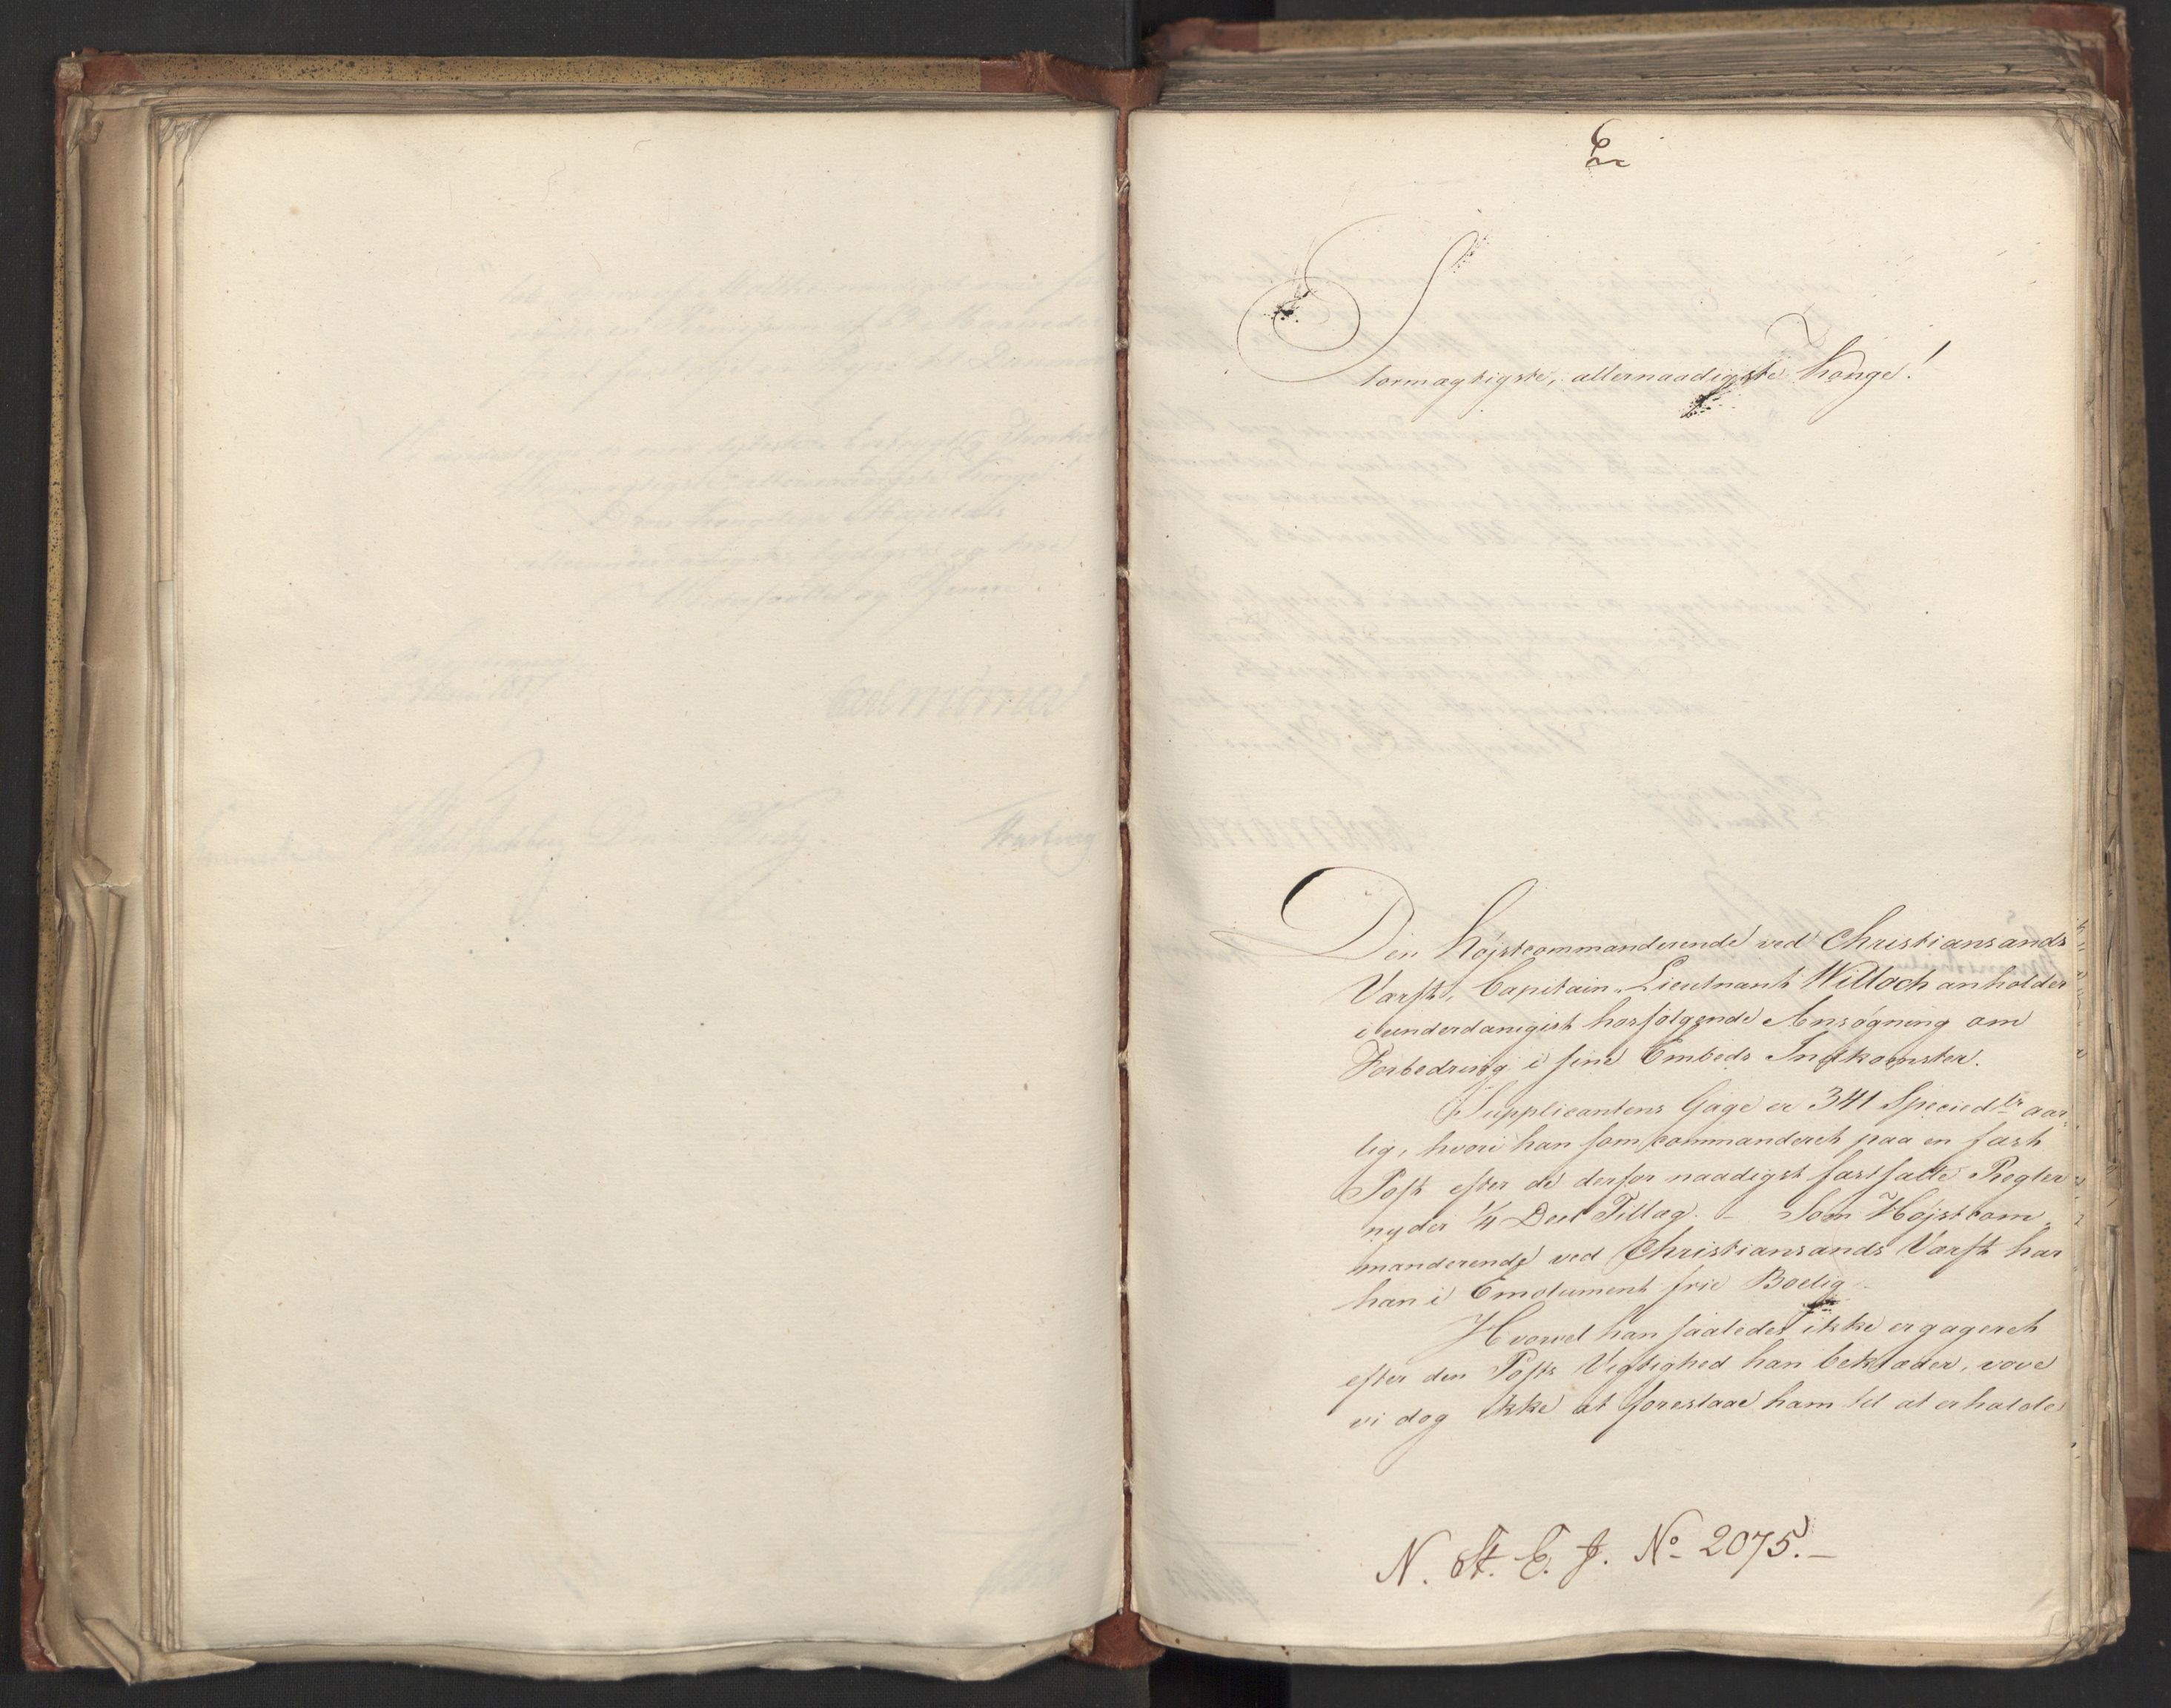 6
Stormægtigste, allernaadigste Konge!
Den Højstcommanderende ved Christiansands
Værft, Capitain-Lieutnant Willoch anholder
i underdanigst hosfølgende Ansøgning om
Forbedring i sine Embeds Indkomster.
Supplicantens Gage er 341 Speciedlr aar-
lig, hvori han som commanderet paa en fast
Post efter de derfor naadigst fastsatte Regler
nyder 1/4 Deel Tillæg. – Som Højstcom-
manderende ved Christiansands Værft har
han i Emolument frie Boelig
Hvorvel han saaledes ikke er gageret
efter den Posts Vigtighed han beklæder, vove
vi dog ikke at foreslaae ham til at erholde
N. St. E. J. No 2075.–